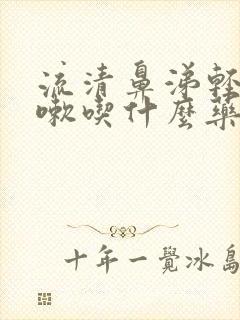 流清鼻涕輕
嗽喫什麼藥
十年一覺冰島